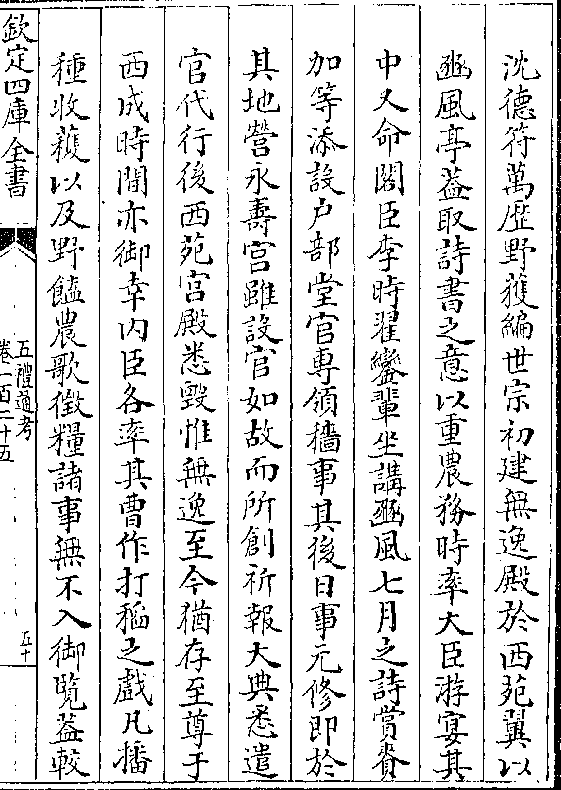 沈德符萬歴野獲編世宗初建無逸殿於西苑翼以
豳風亭葢取詩書之意以重農務時率大臣游宴其
中又命閣臣李時翟鑾輩坐講豳風七月之詩賞賚
加等添設户部堂官專領穡事其後日事元修即於
其地營永壽宫雖設官如故而所創祈報大典悉遣
官代行後西苑宫殿悉毀惟無逸至今猶存至尊于
西成時間亦御幸内臣各率其曹作打稻之戲凡播
種收穫以及野饁農歌徵糧諸事無不入御覽葢較
欽定四庫全書
五禮通考
卷一百二十五
五十